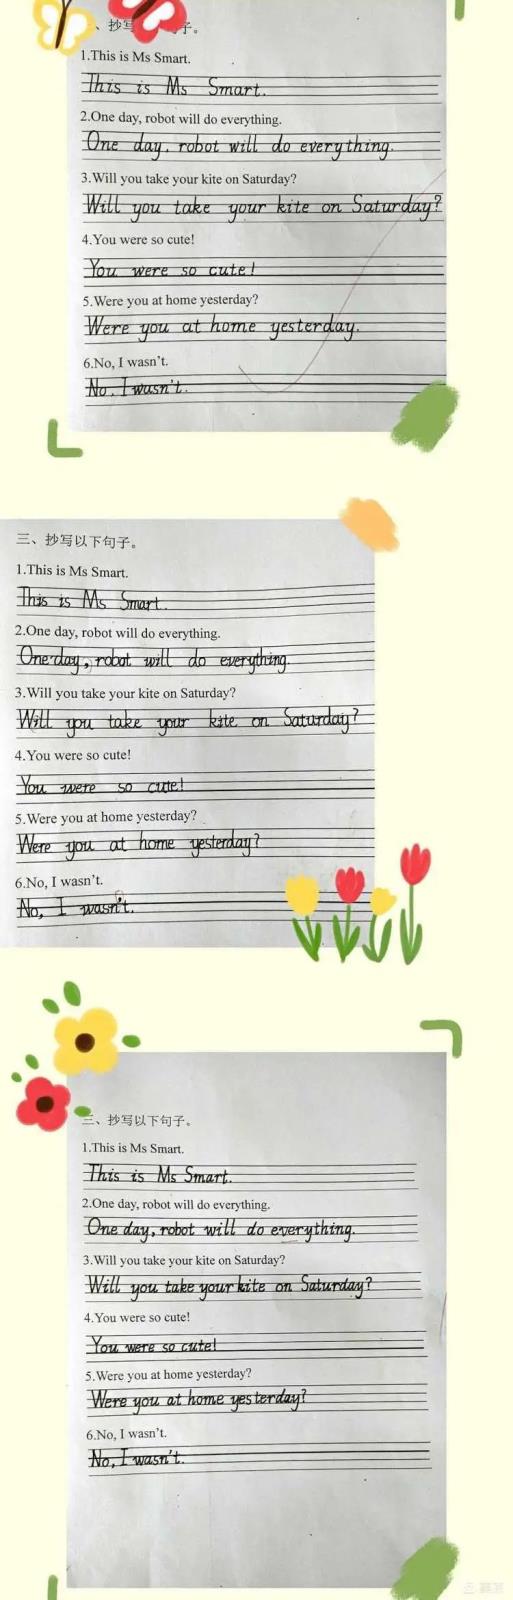 、抄写 子。
1.This is Ms Smart.
This is Ms Smart.
2.One day, robot will do everything.
One day, robot will do everything.
3.Will you take your kite on Saturday?
Will you take your kite on Saturday?
4.You were so cute!
You were so cute!
5.Were you at home yesterday?
Were you at home yesterday.
6.No, I wasn't.
No, I wasn't.
三、抄写以下句子。
1.This is Ms Smart.
This is Ms Smart.
2.One day, robot will do everything.
One day, robot will do everything.
3.Will you take your kite on Saturday?
Will you take your kite on Saturday?
4.You were so cute!
You were so cute!
5.Were you at home yesterday?
Were you at home yesterday?
6.No, I wasn't.
No, I wasn't.
三、抄写以下句子。
1.This is Ms Smart.
This is Ms Smart.
2.One day, robot will do everything.
One day, robot will do everything.
3.Will you take your kite on Saturday?
Will you take your kite on Saturday?
4.You were so cute!
You were so cute!
5.Were you at home yesterday?
Were you at home yesterday?
6.No, I wasn't.
No, I wasn't.